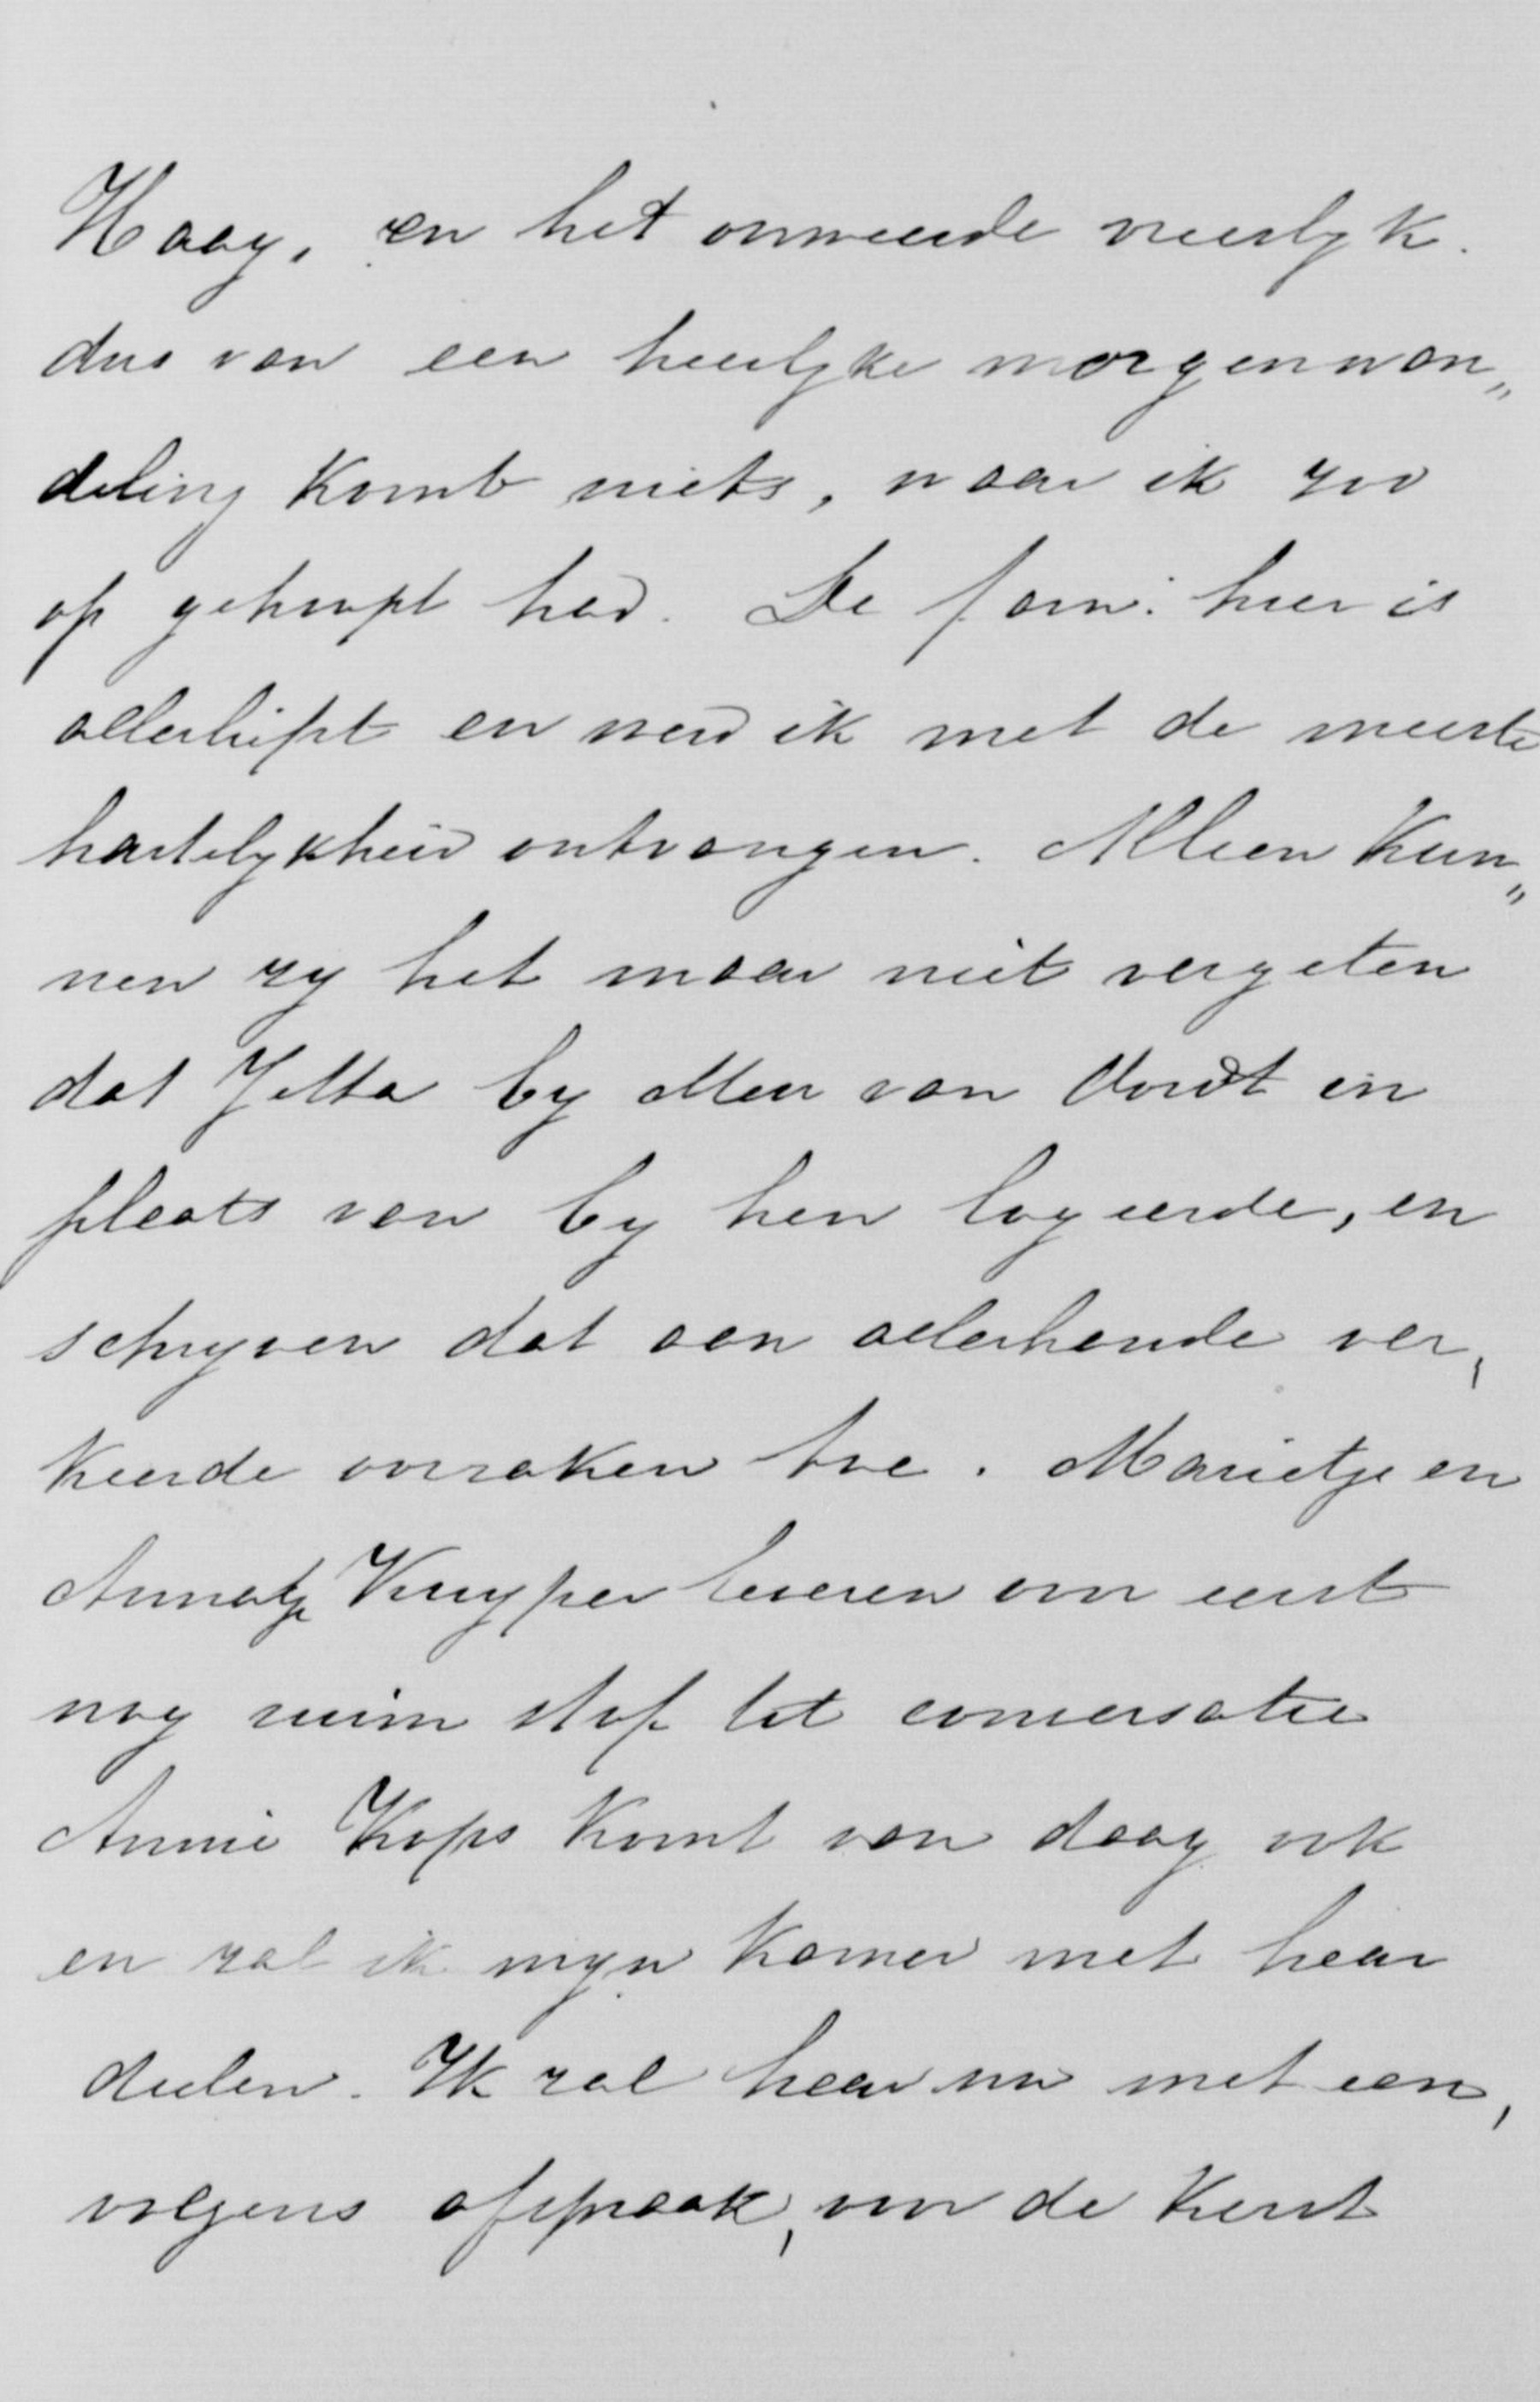 Haag, en het onweerde vreeslyk.
dus van een heerlyke morgenwan„
deling komt niets, waar ik zoo
op gehoopt had. De fam: hier is
allerliefst en werd ik met de meeste
hartelykheid ontvangen. Alleen kun„
nen zy het maar niet vergeten
dat Jetta by Mev van Voirdt in
plaats van by hen logeerde, en
schryven dat aan allerhande ver,
keerde oorzaken toe. Marietje en
Annatje Kuyper leveren ons eerst
nog ruim stof tot conversatie
Annie Kops komt van daag ook
en zal ik myn kamer met haar
deelen. Ik zal haar nu met een,
volgens afspraak, voor de Kerst